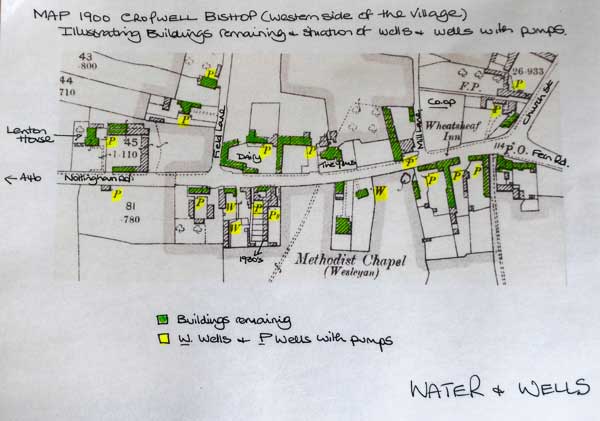 MAP 1900 CROPWELL BISHOP (Western side of the Village)
Illustrating Buildings remaining & situation of wells & wells with pumps.
43
·800
44
710
P
P
26·933
P
F.P.
P
Co-op
Church St
Lenton House
P
45
·1·110
Field Lane
Dairy
P
P
The Yews
Mill Lane
P
Wheatsheaf Inn
114
P.O.
Fern Rd.
← A46
Nottingham Rd.
P
81
·780
P
W
W
P
P
W
P
P
P
1930's
Methodist Chapel
(Wesleyan)
Buildings remainig
W. Wells & P Wells with pumps
WATER & WELLS